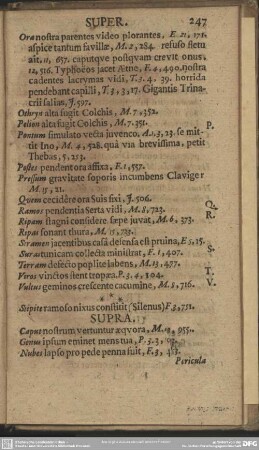 SUPER. 247
Ora nostra parentes video plorantes, E. 21, 171.
aspice tantum favillæ, M. 2, 284. refuso fletu
ait, 11, 657. caputque posuquam crevit onus,
12, 516. Typhoëos jacet Ætne, F. 4, 490. nostra
cadentes lacrymas vidi, T. 3. 4. 39. horrida
pendebant capilli, T. 3, 3, 17. Gigantis Trina-
crii salias, J. 597.
Othryn alta fugit Colchis, M. 7, 352.
Pelion alta fugit Colchis, M. 7. 351.
P.
Pontum simulato vecta juvenco. A. 1. 3, 23. se mit-
tit Ino, M. 4, 528. quà via brevissima, petit
Thebas, 5, 253.
Postes pendent ora affixa, E. 1, 557.
Pressum gravitate soporis incumbens Claviger
M. 15, 21.
Quem cecidêre ora Suis fixi, J. 506.
Q.
Ramos pendentia Serta vidi, M. 8, 723.
R.
Ripam stagni considere sæpe juvat, M. 6, 373.
Ripas sonant thura, M. 15, 723.
Stramen jacentibus casâ defensa est pruina, E 5, 15.
S.
Suras tunicam collecta minuitur, F. 1, 407.
Terram defecto poplite labens, M. 13, 477.
T.
Viros vinctos stent tropæa. P. 3, 4. 104.
V.
Vultus geminos crescente cacumine, M. 8, 716.
* * *
Stipite ramoso nixus constitit (Silenus) F. 3, 751.
SUPRA.
Caput nostrum vertuntur æqvora, M. 13, 955.
Genus ipsum eminet mens tua, P. 3. 3,
Nubes lapso pro pede penna fuit, F. 3,
Pericula
DFG